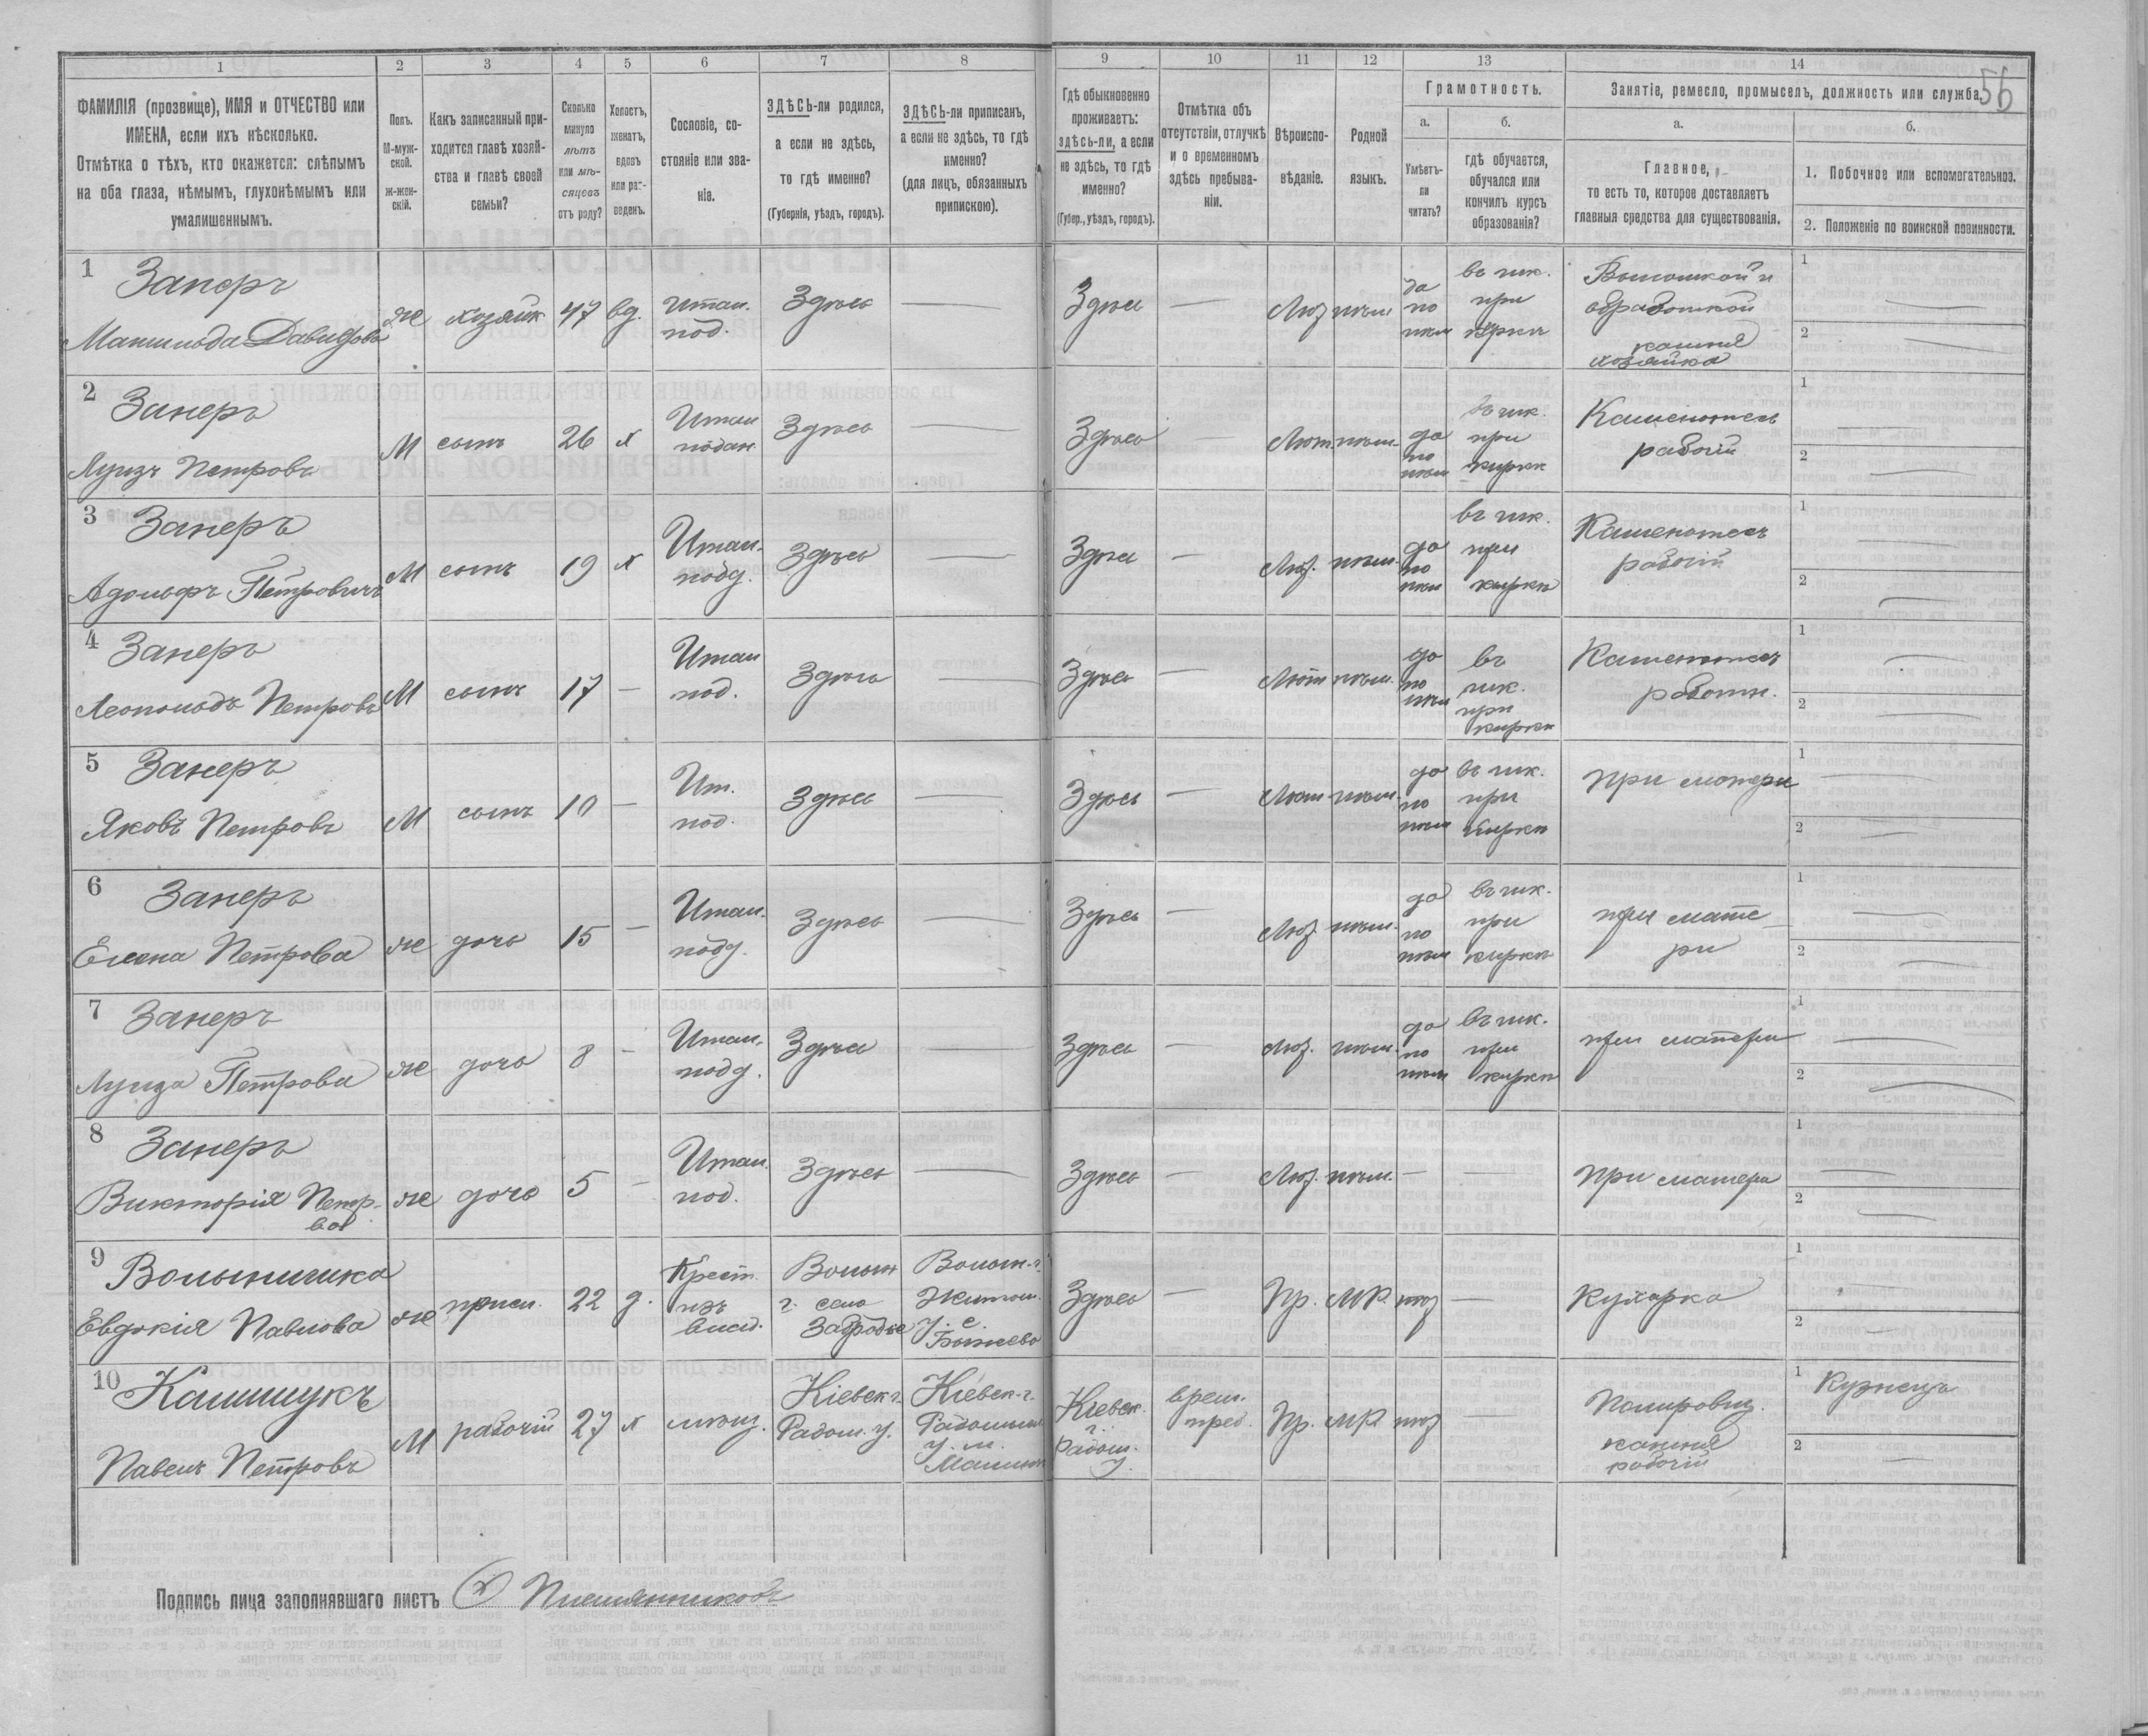 1 2 3 4 5 6 7 8 9 10 11 12 13 14
56
ФАМИЛІЯ (прозвище), ИМЯ и ОТЧЕСТВО или
ИМЕНА, если ихъ нѣсколько.
Отмѣтка о тѣхъ, кто окажется: слѣпымъ
на оба глаза, нѣмымъ, глухонѣмымъ или
умалишеннымъ.
Полъ.
М-муж-
ской.
ж-жен-
скій.
Какъ записанный при-
ходится главѣ хозяй-
ства и главѣ своей
семьи?
Сколько
минуло
лѣтъ
или мѣ-
сяцевъ
отъ роду?
Холостъ,
женатъ,
вдовъ
или раз-
веденъ.
Сословіе, со-
стояніе или зва-
ніе.
ЗДѢСЬ-ли родился,
а если не здѣсь,
то гдѣ именно?
(Губернія, уѣздъ, городъ).
ЗДѢСЬ-ли приписанъ,
а если не здѣсь, то гдѣ
именно?
(для лицъ, обязанныхъ
припискою).
Гдѣ обыкновенно
проживаетъ:
здѣсь-ли, а если
не здѣсь, то гдѣ
именно?
(Губер., уѣздъ, городъ).
Отмѣтка объ
отсутствіи, отлучкѣ
и о временномъ
здѣсь пребыва-
ніи.
Вѣроиспо-
вѣданіе.
Родной
языкъ.
Грамотность.
а.
Умѣетъ-
ли
читать?
б.
гдѣ обучается,
обучался или
кончилъ курсъ
образованія?
Занятіе, ремесло, промыселъ, должность или служба.
а.
Главное,
то есть то, которое доставляетъ
главныя средства для существованія.
б.
1. Побочное или вспомогательное.
2. Положеніе по воинской повинности.
1
Занеръ
Давидова
же хозяйк 47 вд. Итал.
под.
Здѣсь — Здѣсь — Лют нѣм да
по
нѣм
въ шк.
при
кирки
обработкой
камня
хозяйка
1 —
2 —
2
Занеръ
Луизъ Петровъ
М сынъ 26 х Итал
подан.
Здѣсь — Здѣсь — Лют. нѣм. да
по
нѣм
въ шк.
при
кирки
Каменотесъ
рабочій
1
2 —
3
Занеръ
Адольфъ Петровичъ
М сынъ 19 х Итал.
подд.
Здѣсь — Здѣсь — Лют. нѣм. да
по
нѣм
въ шк.
при
кирки
Каменотесъ
рабочій
1 —
2 —
4
Занеръ
Леопольдъ Петровъ
М сынъ 17 — Итал
под.
Здѣсь — Здѣсь — Лют нѣм. да
по
нѣм
въ
шк.
при
кирки
Каменотесъ
1 —
2 —
5
Занеръ
Яковъ Петровъ
М сынъ 10 — Ит.
под.
Здѣсь — Здѣсь — Лют нѣм. да
по
нѣм
въ шк.
при
кирки
при матери
1 —
2 —
6
Занеръ
Елена Петрова
же дочь 15 — Итал.
подд.
Здѣсь — Здѣсь — Лют. нѣм. да
по
нѣм
въ шк.
при
кирки
при мате
ри
1 —
2 —
7
Занеръ
Луиза Петрова
же дочь 8 — Итал.
подд.
Здѣсь — Здѣсь — Лют. нѣм. да
по
нѣм
въ шк.
при
кирки
при матери
1 —
2 —
8
Занеръ
Викторія Петр-
ва
же дочь 5 — Итал.
под.
Здѣсь — Здѣсь — Лют. нѣм. — — при матери
1 —
2 —
9
Евдокія Павлова
же присл. 22 д. Крест.
изъ
Волын
г. село
Волын. г.
Житом.
у. с.
Здѣсь — Пр. МР. — Кухарка
1 —
2 —
10
Павелъ Петровъ
М рабочій 27 х мѣщ.
Кіевск. г.
Радом. у.
Кіевск. г.
у. м.
Кіевск.
г.
Радом.
у.
врем.
преб.
Пр. МР —
камня
рабочій
1 Кузнецъ
2 —
Подпись лица заполнявшаго листъ Племянниковъ